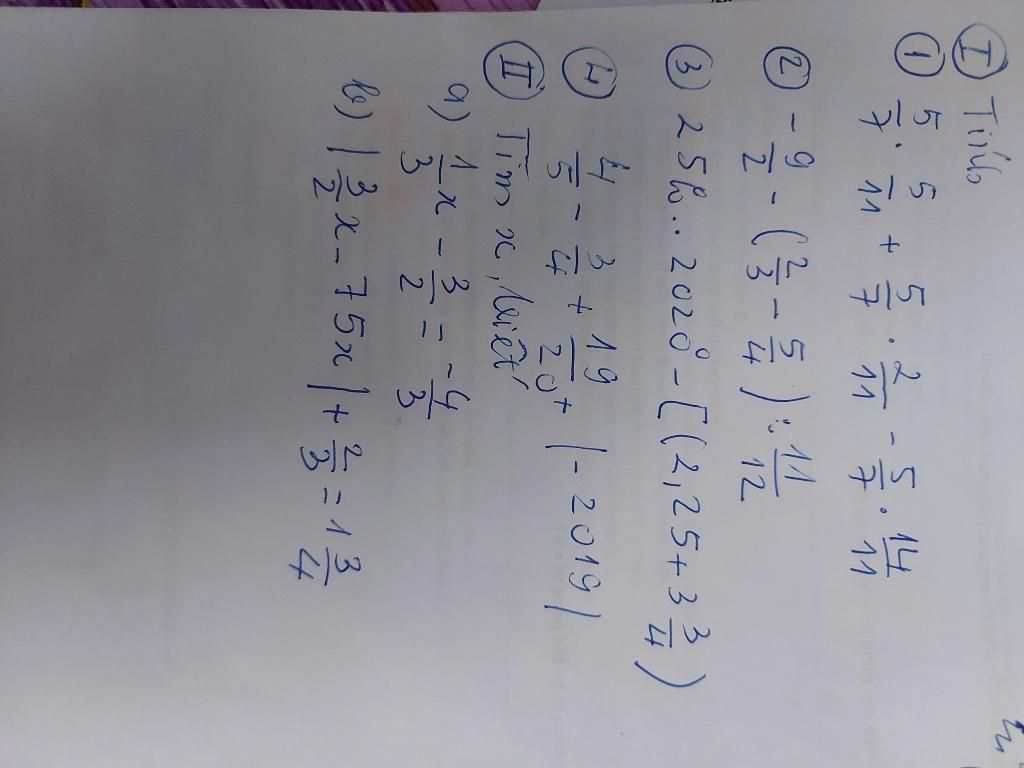 Ⓘ Tính
① 5/7 . 5/11 + 5/7 . 2/11 - 5/7 . 14/11
② - 9/2 - (2/3 - 5/4) : 11/12
③ 25% . 2020⁰ - [(2,25 + 3 3/4)
④ 4/5 - 3/4 + 19/20 + |-2019|
Ⓘ Tìm x, biết
a) 1/3 x - 3/2 = -4/3
b) |3/2 x - 75x| + 2/3 = 1 3/4